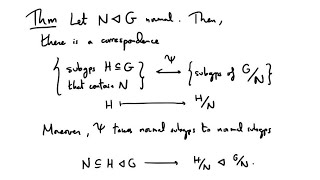 Thm Let N ◁ G normal. Then,
there is a correspondence
{ subgps H ⊆ G that contain N } ⟷ Ψ { subgps of G/N }
H ⟼ H/N
Moreover, Ψ takes normal subgps to normal subgps
N ⊆ H ◁ G ⟶ H/N ◁ G/N.